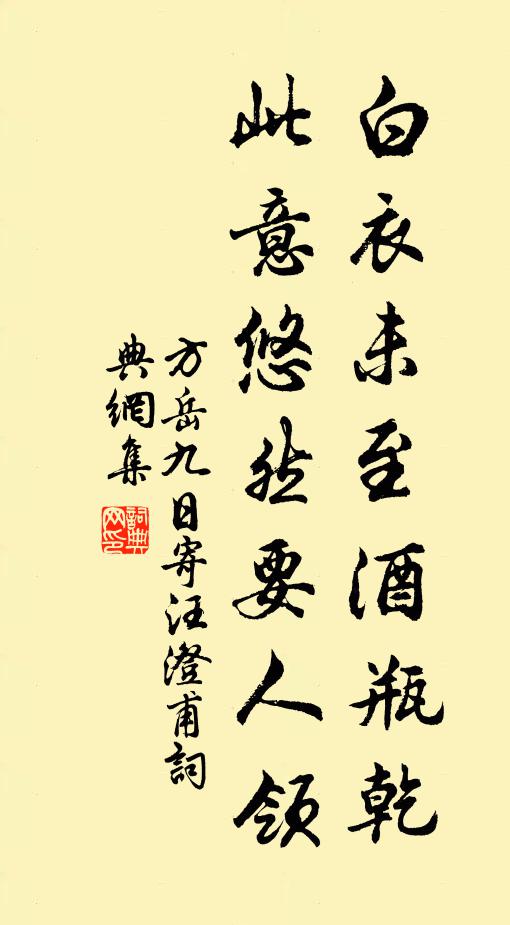 白衣未至酒瓶乾
此意悠然要人領
方岳九日寄汪澄甫詞
典網集
詞典網印